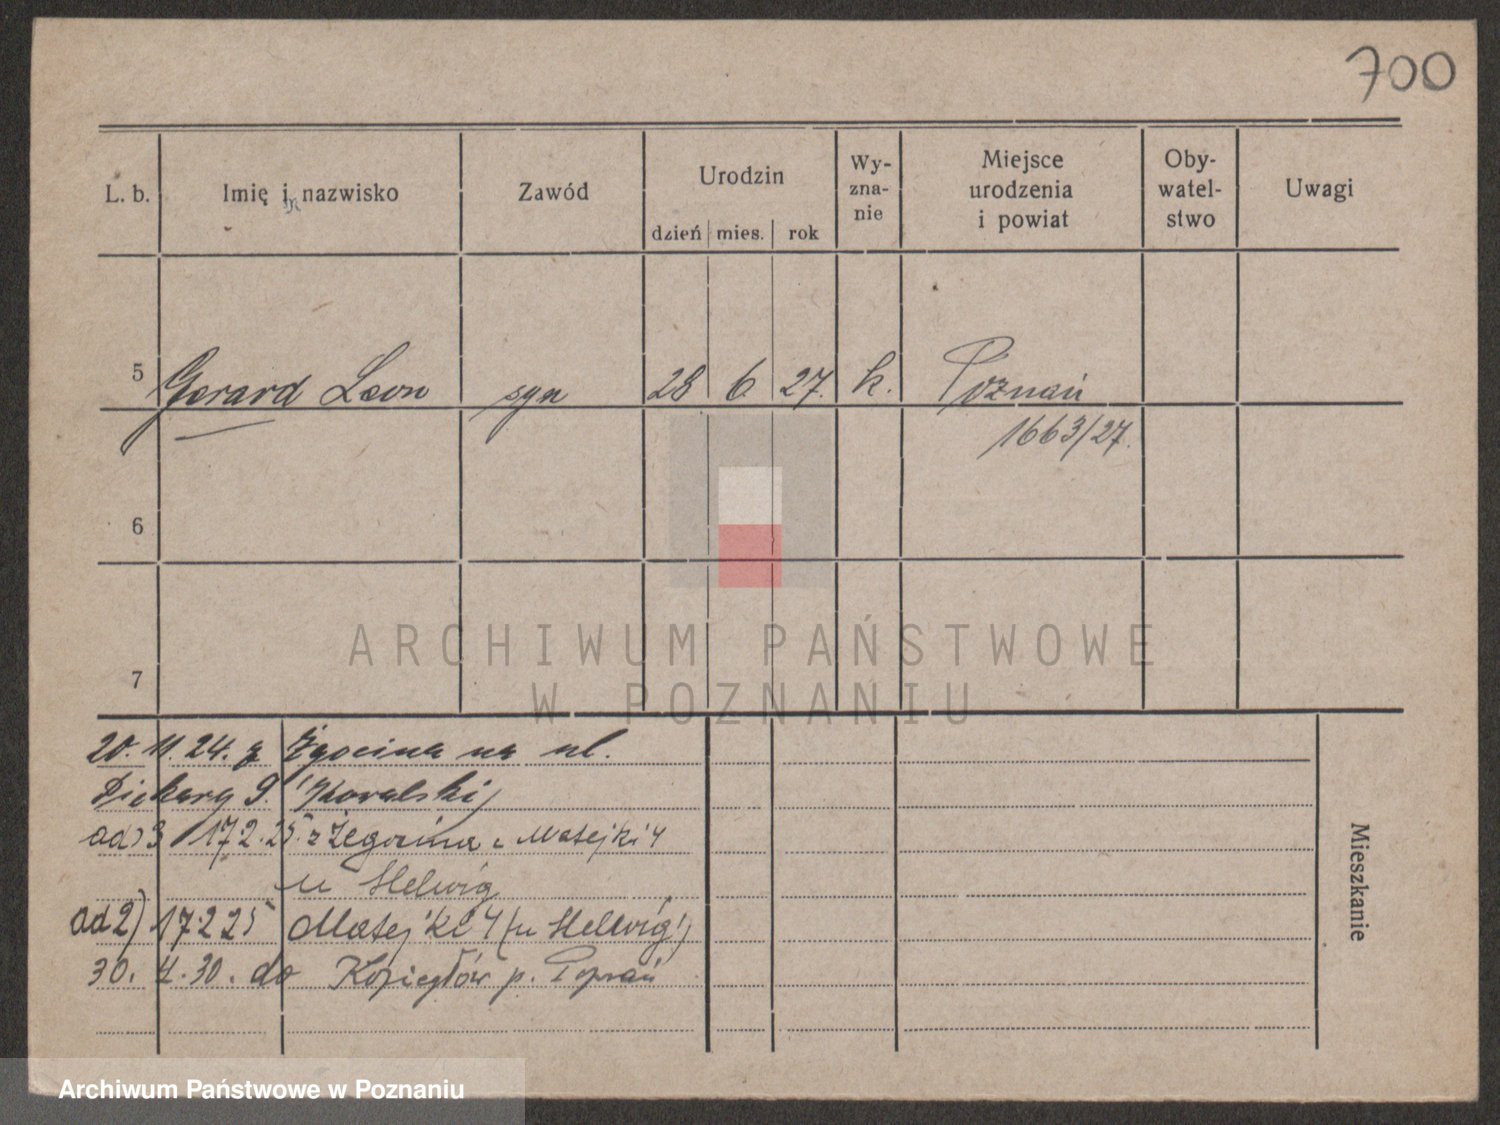 700
L. b. Imię i nazwisko Zawód Urodzin Wy-zna-nie Miejsce urodzenia i powiat Oby-watel-stwo Uwagi
dzień mies. rok
5 Gerard Leon syn 28 6 27. k. Poznań
1663/27.
6
ARCHIWUM PAŃSTWOWE
W POZNANIU
7
20. 11. 24. z Żgocina na ul.
Piekary 9. Kowalski
ad 3 17.2.25. z Żegocina Matejki 4
u Helwig
ad 2) 17 2 25 Matejki 4 (u Hellwig)
30. 4. 30. do Koziegłów p. Poznań
Mieszkanie
Archiwum Państwowe w Poznaniu